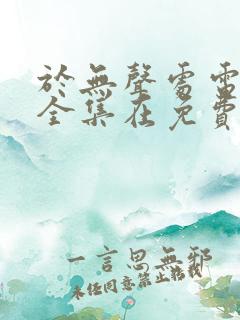 於無聲處雷
全集在免費
一言思無邪
未經同意禁止轉載